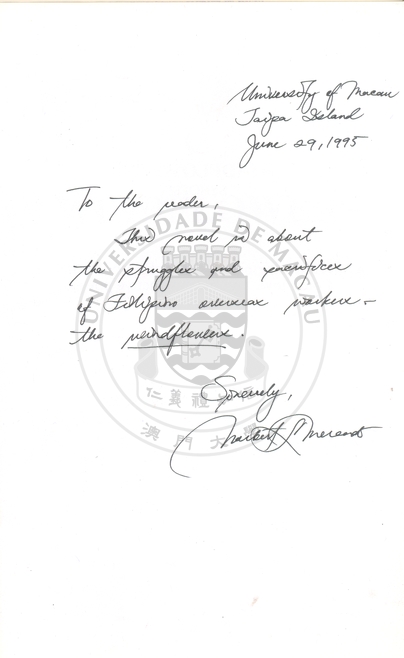 University of Macau
Taipa Island
June 29, 1995
To the reader,
This novel is about
the struggles and sacrifices
of Filipino overseas workers –
the windflowers.
Sincerely,
Norbert Mercado
UNIVERSIDADE DE MACAU
仁義禮
澳門大學